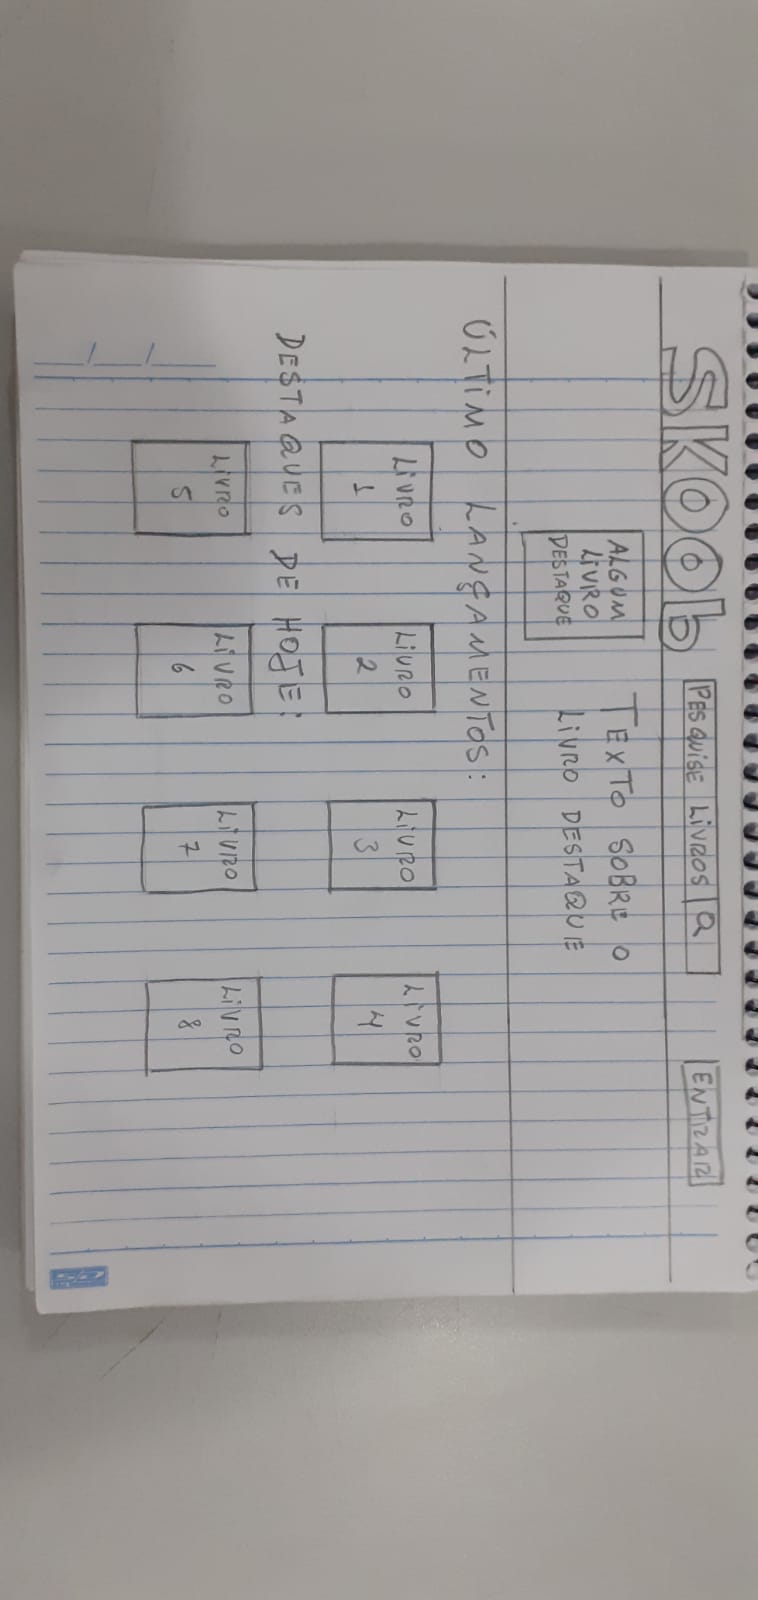 SKOOb
PESQUISE LIVROS
ENTRAR
ALGUM
LIVRO
DESTAQUE
TEXTO SOBRE O
LIVRO DESTAQUE
ÚLTIMO LANÇAMENTOS:
LIVRO
1
LIVRO
2
LIVRO
3
LIVRO
4
DESTAQUES DE HOJE:
LIVRO
5
LIVRO
6
LIVRO
7
LIVRO
8